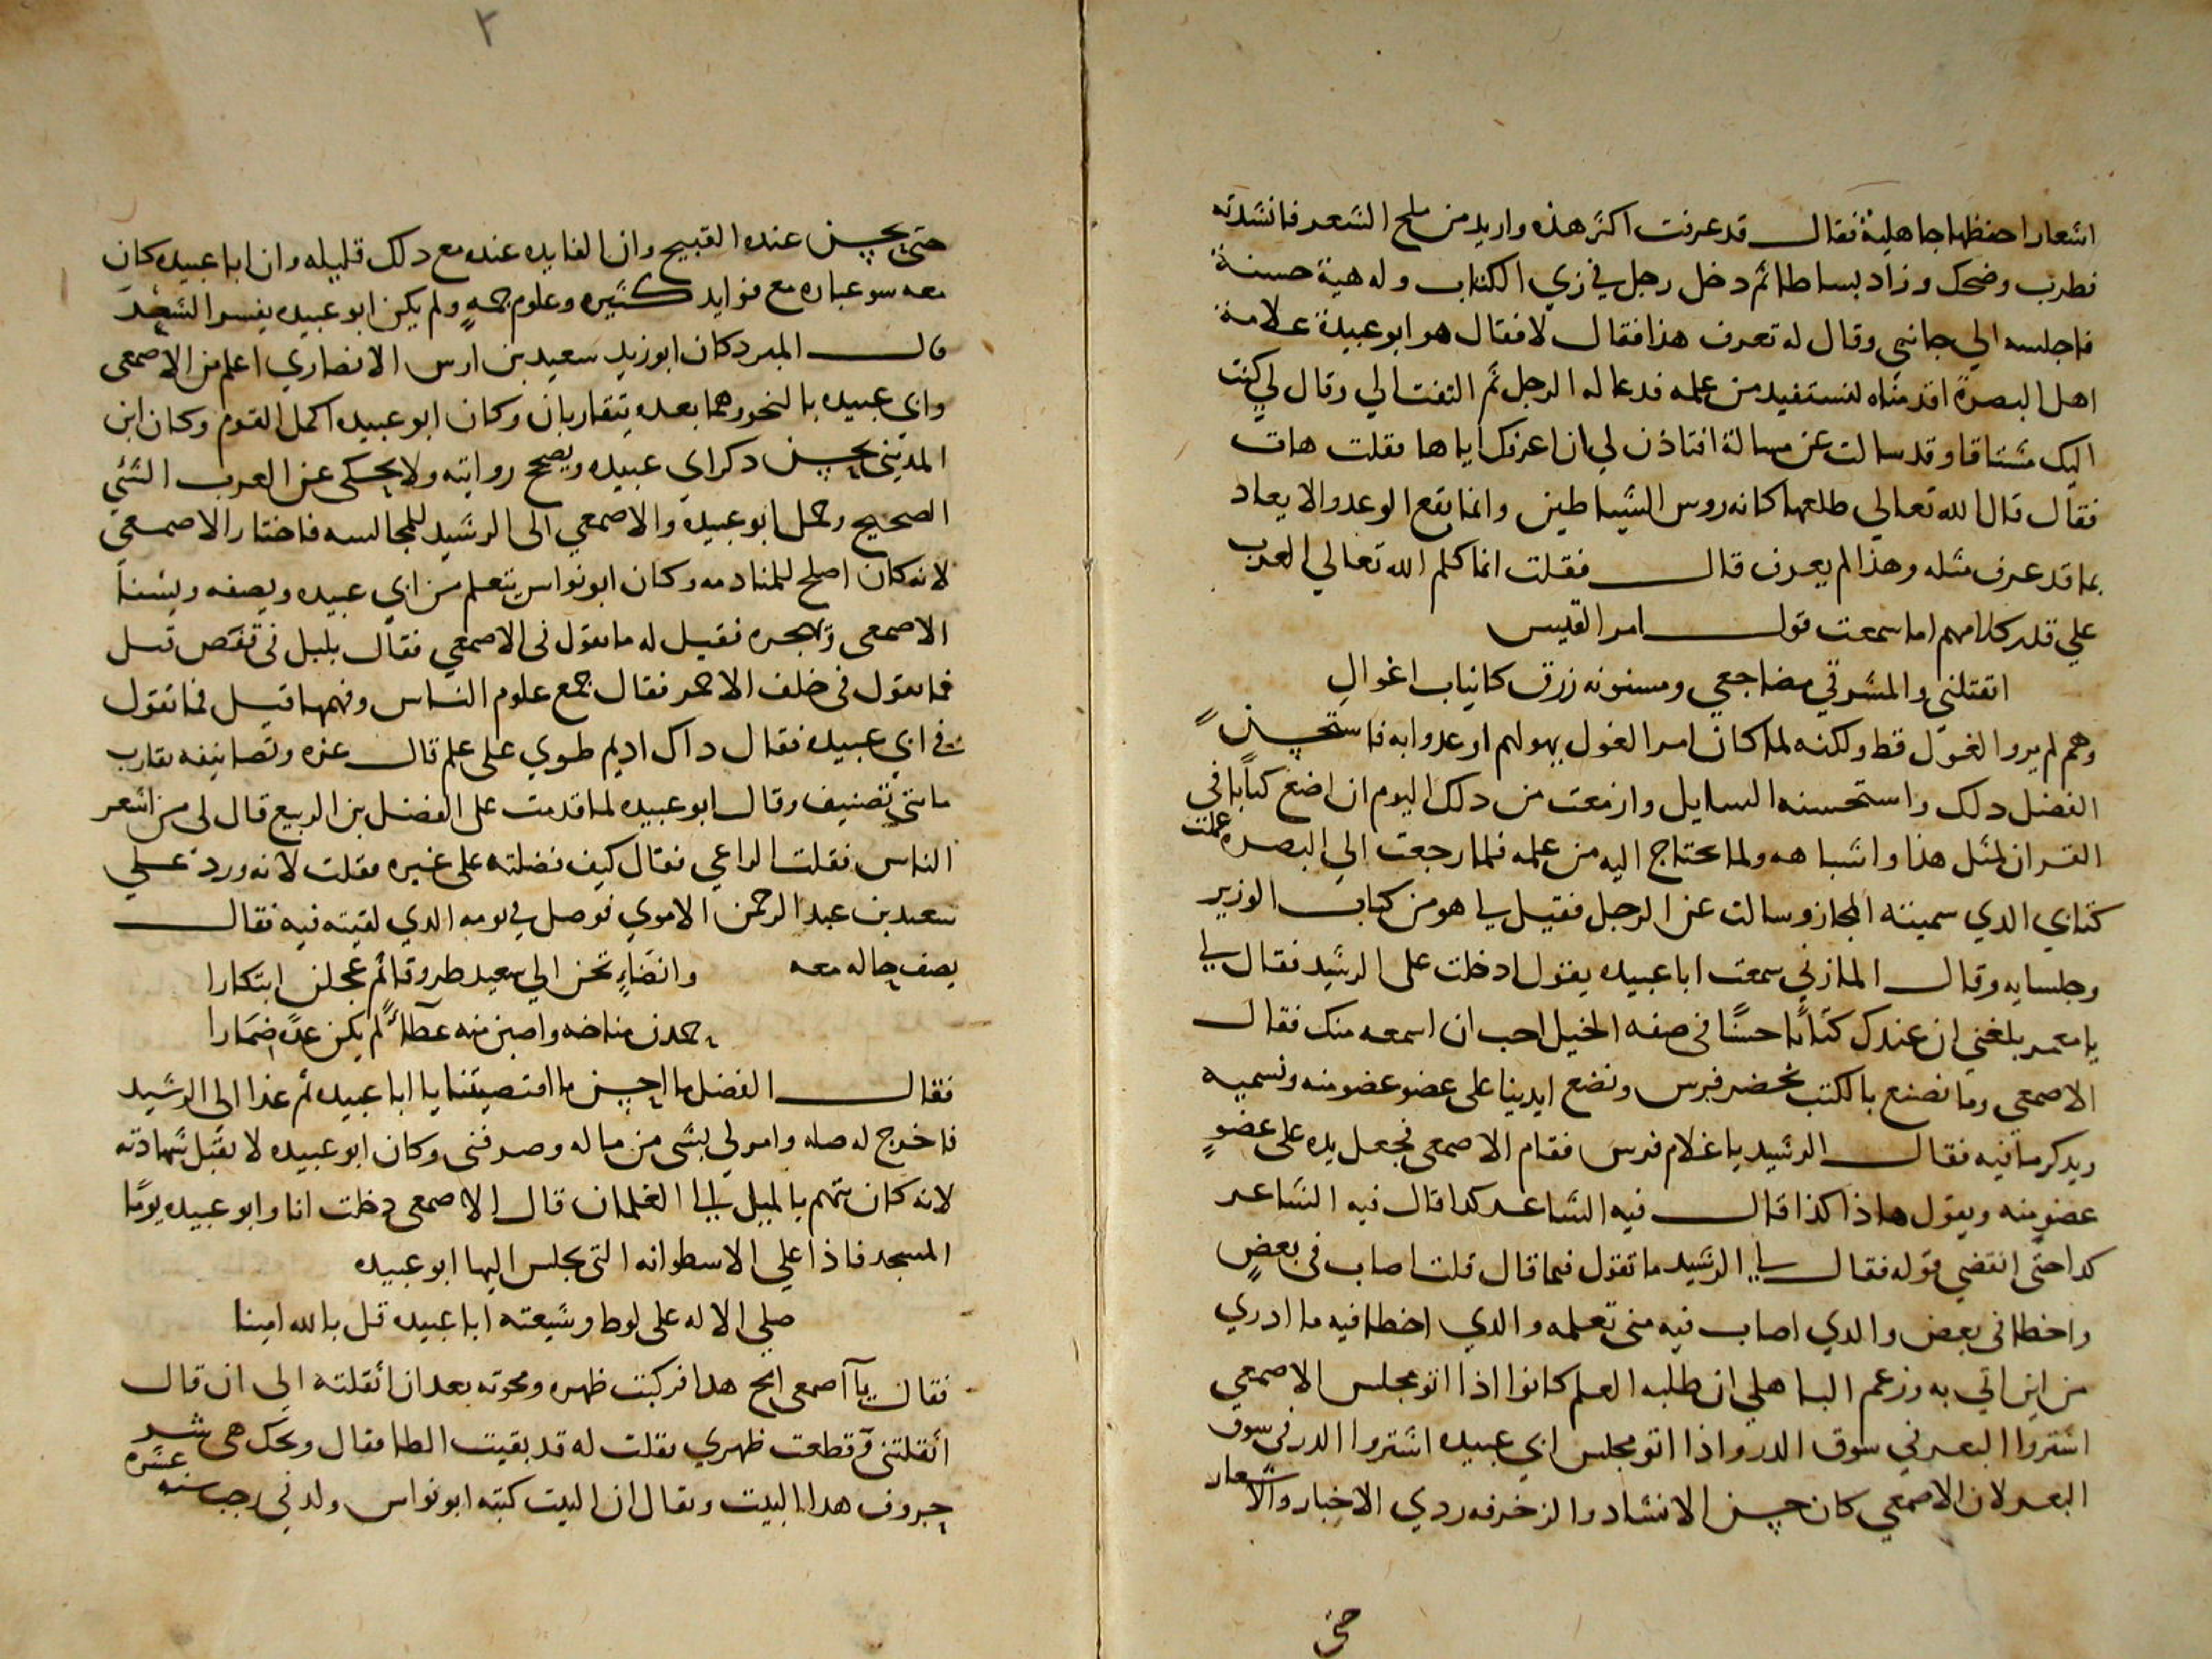 اشعارا احفظها جاهلية فقال قد عرفت اكثر هذه واريد من ملح الشعر فانشدته
فطرب وضحك وزاد بساطا ثم دخل رجل في زي الكتاب وله هيئة حسنة
فاجلسه الي جانبي وقال له تعرف هذا فقال لا فقال هو ابو عبيدة علامة
اهل البصرة اقدمناه لنستفيد من علمه فدعا له الرجل ثم التفت الي وقال لي كنت
اليك مشتاقا وقد سالت عن مسالة افتاذن لي ان اعرفك اياها فقلت هات
فقال قال الله تعالي طلعها كانه روس الشياطين وانما يقع الوعد والايعاد
بما قد عرف مثله وهذا لم يعرف قال فقلت انما كلم الله تعالي العرب
علي قدر كلامهم اما سمعت قول امر القيس
اتقتلني والمشرفي مضاجعي ومسنونه زرق كانياب اغوال
وهم لم يروا الغول قط ولكنه لما كان امر الغول يهولهم اوعدوا به فاستحسن
الفضل دلك واستحسنه السايل وازمعت من دلك اليوم ان اضع كتابا في
القران لمثل هذا واشباهه ولما يحتاج اليه من علمه فلما رجعت الي البصره عملت
كتابي الدي سميته المجاز وسالت عن الرجل فقيل لي هو من كتاب الوزير
وجلسايه وقال المازني سمعت ابا عبيده يقول ادخلت على الرشيد فقال لي
يا معمر بلغني ان عندك كتابا حسنا في صفه الخيل احب ان اسمعه منك فقال
الاصمعي وما نصنع بالكتب نحضر فرس ونضع ايدينا على عضو عضو منه ونسميه
ويدكر ما فيه فقال الرشيد يا غلام فرس فقام الاصمعي فجعل يده على عضو
عضو منه ويقول هاذا كذا قال فيه الشاعر كدا قال فيه الشاعر
كدا حتى انقضي قوله فقال لي الرشيد ما تقول فيما قال قلت اصاب في بعض
واخطا في بعض والدي اصاب فيه مني تعلمه والدي اخطا فيه ما ادري
من اين اتي به وزعم الباهلي ان طلبه العلم كانوا اذا اتو مجلس الاصمعي
اشتروا البعر في سوق الدر واذا اتو مجلس ابي عبيده اشتروا الدر في سوق
البعر لان الاصمعي كان حسن الانشاد والزخرفه ردي الاخبار والاشعار
حتى
٢
حتى يحسن عنده القبيح وان الفايده عنده مع دلك قليله وان ابا عبيده كان
معه سو عباره مع فوايد كثيره وعلوم جمه ولم يكن ابو عبيده يفسر الشعر
قال المبرد كان ابو زيد سعيد بن اوس الانصاري اعلم من الاصمعي
وابي عبيده بالنحو وهما بعده يتقاربان وكان ابو عبيده اكمل القوم وكان ابن
المديني يحسن دكر ابي عبيده ويصحح روايته ولا يحكى عن العرب الشئي
الصحيح وحمل ابو عبيدة والاصمعي الى الرشيد للمجالسه فاختار الاصمعي
لانه كان اصلح للمنادمه وكان ابو نواس يتعلم من ابي عبيده ويصفه ويشنأ
الاصمعى ويهجره فقيل له ما تقول في الاصمعي فقال بلبل في قفص قيل
فما تقول في خلف الاحمر فقال جمع علوم الناس وفهمها قيل فما تقول
في ابي عبيده فقال داك اديم طوي على علم قال عزه وتصانيفه تقارب
مايتي تصنيف وقال ابو عبيده لما قدمت على الفضل بن الربيع قال لي من اشعر
الناس فقلت الراعي فقال كيف فضلته على غيره فقلت لانه ورد علي
سعيد بن عبد الرحمن الاموي فوصل في يومه الدي لقيته فيه فقال
يصف حاله معه وانضاءٍ تحن الي سعيد طروقا ثم عجلن ابتكارا
حمدن مناخه واصبن منه عطاءً لم يكن عده ضمارا
فقال الفضل ما احسن ما اقتضيتنا يا ابا عبيده ثم غدا الي الرشيد
فاخرج له صله وامر لي بشى من ماله وصرفني وكان ابو عبيده لا تقبل شهادته
لانه كان يتهم بالميل الي الغلمان قال الاصمعى دخلت انا وابو عبيده يوما
المسجد فاذا علي الاسطوانه التي يجلس اليها ابو عبيده
صلى الاله على لوط وشيعته ابا عبيده قل بالله امينا
فقال يا اصمعى امح هدا فركبت ظهره ومحوته بعد ان اثقلته الى ان قال
اثقلتني وقطعت ظهري فقلت له قد بقيت الطا فقال ويحك هي شر
حروف هدا البيت ويقال ان البيت كتبه ابو نواس ولد في رجب سنه عشره